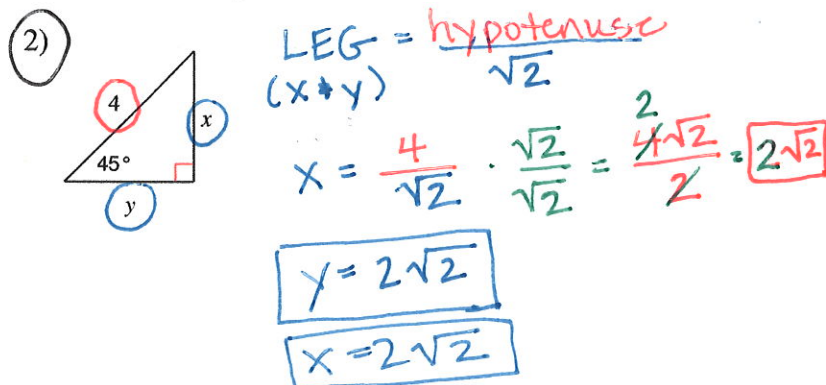 2)
4
x
45°
y
LEG = hypotenuse / √2
(x + y)
x = 4/√2 · √2/√2 = 2 4√2/2 = 2√2
y = 2√2
x = 2√2